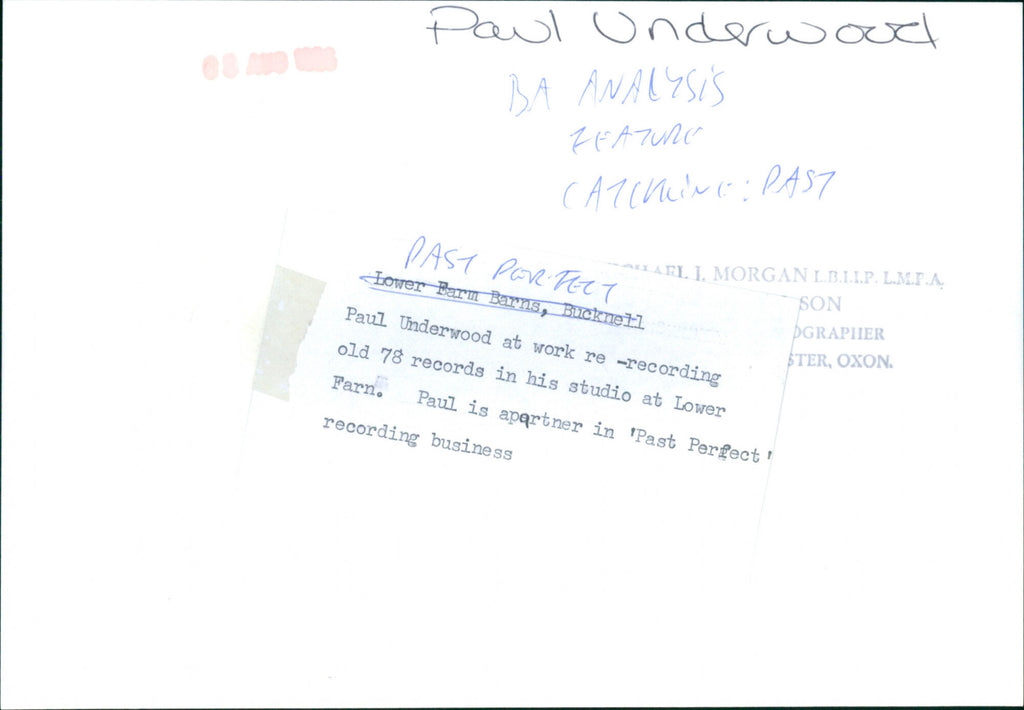 Paul Underwood
BA ANALYSIS
FEATURE
CATCHLINE: PAST
PAST PERFECT
Lower Farm Barns, Bucknell
Paul Underwood at work re -recording
old 78 records in his studio at Lower
Farn. Paul is apartner in 'Past Perfect'
recording business
I. MORGAN L.B.I.I.P. L.M.P.A.
SON
OGRAPHER
STER, OXON.